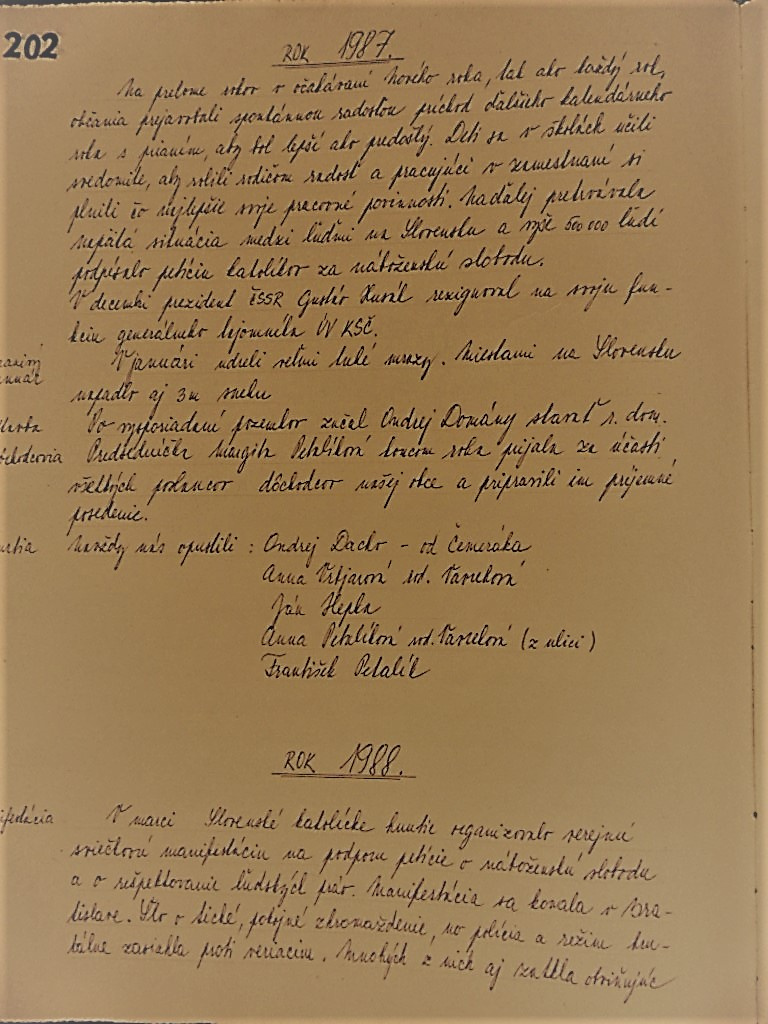 202
ROK 1987.
Na prelome rokov v očakávaní Nového roka, tak ako každý rok,
občania prejavovali spontánnou radosťou príchod ďalšieho kalendárneho
roka s prianím, aby bol lepší ako predošlý. Deti sa v školách učili
svedomite, aby robili rodičom radosť a pracujúci v zamestnaní si
plnili čo najlepšie svoje pracovné povinnosti. Naďalej pretrvávala
napätá situácia medzi ľuďmi na Slovensku a vyše 500 000 ľudí
podpísalo petíciu katolíkov za náboženskú slobodu.
V decembri prezident ČSSR Gustáv Husák rezignoval na svoju fun-
kciu generálneho tajomníka ÚV KSČ.
V januári udreli veľmi tuhé mrazy. Miestami na Slovensku
napadlo aj 3m snehu
Po vysporiadaní pozemkov začal Ondrej Domány stavať r. dom.
Predsedníčka Margita Petalíková koncom roka prijala za účasti
všetkých poslancov dôchodcov našej obce a pripravili im príjemné
posedenie.
Navždy nás opustili : Ondrej Dacho - od Čemeráka
Anna Vrťjarová rod. Vavreková
Ján Hepka
Anna Petalíková rod. Vavreková (z ulici)
František Petalík
ROK 1988.
V marci Slovenské katolícke hnutie organizovalo verejnú
sviečkovú manifestáciu na podporu petície o náboženskú slobodu
a o rešpektovanie ľudských práv. Manifestácia sa konala v Bra-
tislave. Išlo o tiché, pokojné zhromaždenie, no polícia a režim bru-
tálne zasiahla proti veriacim. Mnohých z nich aj zatkla obviňujúc